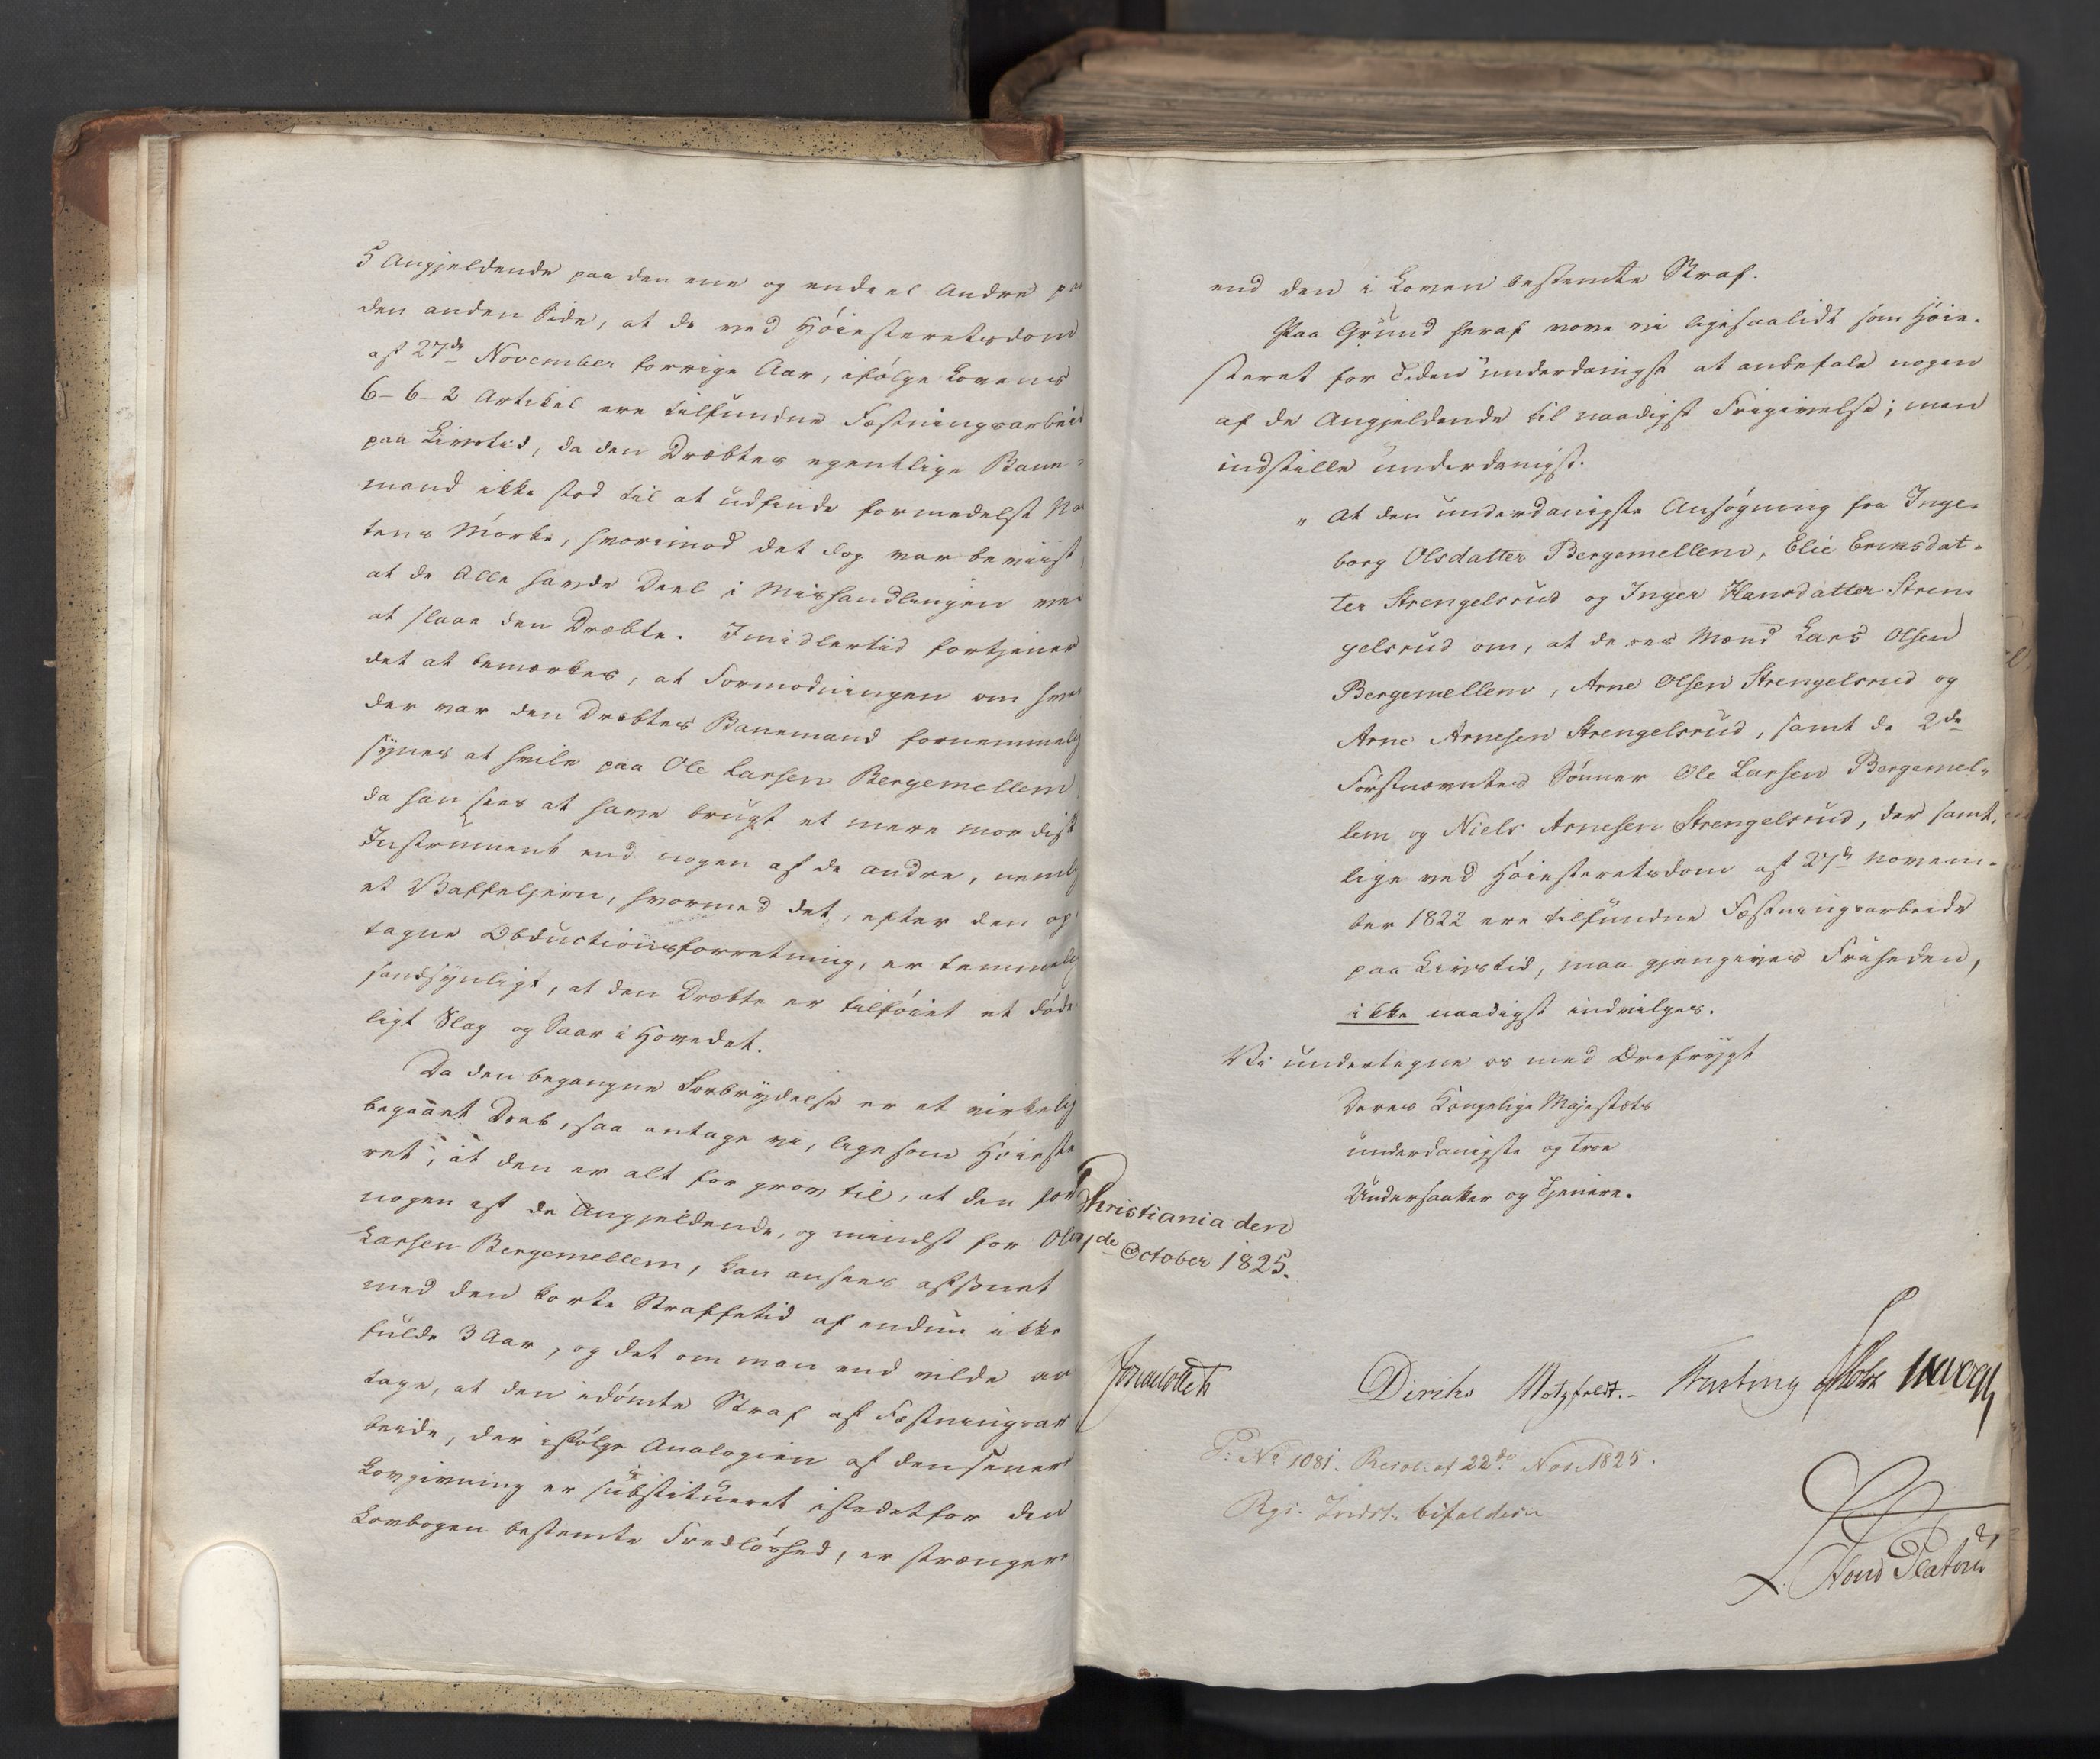 5 Angjeldende paa den ene og endeel Andre paa
den anden Side, at de ved Höiesteretsdom
af 27de November forrige Aar, ifölge Lovens
6-6-2 Artikel ere tilfundne Fæstningsarbeid
paa Livstid, da den Dræbtes egentlige Bane-
mand ikke stod til at udfinde formedelst Na
tens Mörke, hvorimod det dog var beviist,
at de Alle havde Deel i Mishandlingen ved
at slaae den Dræbte. Imidlertid fortjener
det at bemærkes, at Formodningen om hvo
der var den Dræbtes Banemand fornemmelig
synes at hvile paa Ole Larsen Bergemellem,
da han sees at have brugt et mere mordisk
Instrument end nogen af de andre, nemlig
et Vaffeljern, hvormed det, efter den op
tagne Obductionsforretning, er temmelig
sandsynligt, at den Dræbte er tilföiet et döde
ligt Slag og Saar i Hovedet.
Da den begangne Forbrydelse er et virkelig
begaaet Drab, saa antage vi, ligesom Höieste
ret, at den er alt for grov til, at den for
nogen af de Angjeldende, og mindst for Ole
Larsen Bergemellem, kan ansees afsonet
med den korte Straffetid af endnu ikke
fulde 3 Aar, og det om man end vilde an
tage, at den idömte Straf af Fæstningsar
beide, der ifölge Analogien af den senere
Lovgivning er substitueret istedetfor den
Lovbogen bestemte Fredlöshed, er strængere
end den i Loven bestemte Straf.
Paa Grund heraf vove vi ligesaalidt som Höie-
steret for Tiden underdanigst at anbefale nogen
af de Angjeldende til naadigst Frigivelse; men
indstille underdanigst.
„At den underdanigste Ansögning fra Inge-
borg Olsdatter Bergemellem, Elie Eriksdat-
ter Strengelsrud og Inger Hansdatter Stren-
gelsrud om, at deres Mænd Lars Olsen
Bergemellem, Arne Olsen Strengelsrud og
Arne Arnesen Strengelsrud, samt de 2de
Förstnævntes Sönner Ole Larsen Bergemel-
lem og Niels Arnesen Strengelsrud, der samt-
lige ved Höiesteretsdom af 27de Novem-
ber 1822 ere tilfundne Fæstningsarbeide
paa Livstid, maa gjengives Friheden,
ikke naadigst indvilges.
Vi undertegne os med Ærefrygt
Deres Kongelige Majestæts
underdanigste og troe
Undersaatter og Tjenere.
Christiania den
1de October 1825.
Diriks Motzfeldt. Fasting Holst Vogt
P: No 1081. Resol: af 22de Nov. 1825.
Rgs. Indst. bifaldes
Stoud Platou